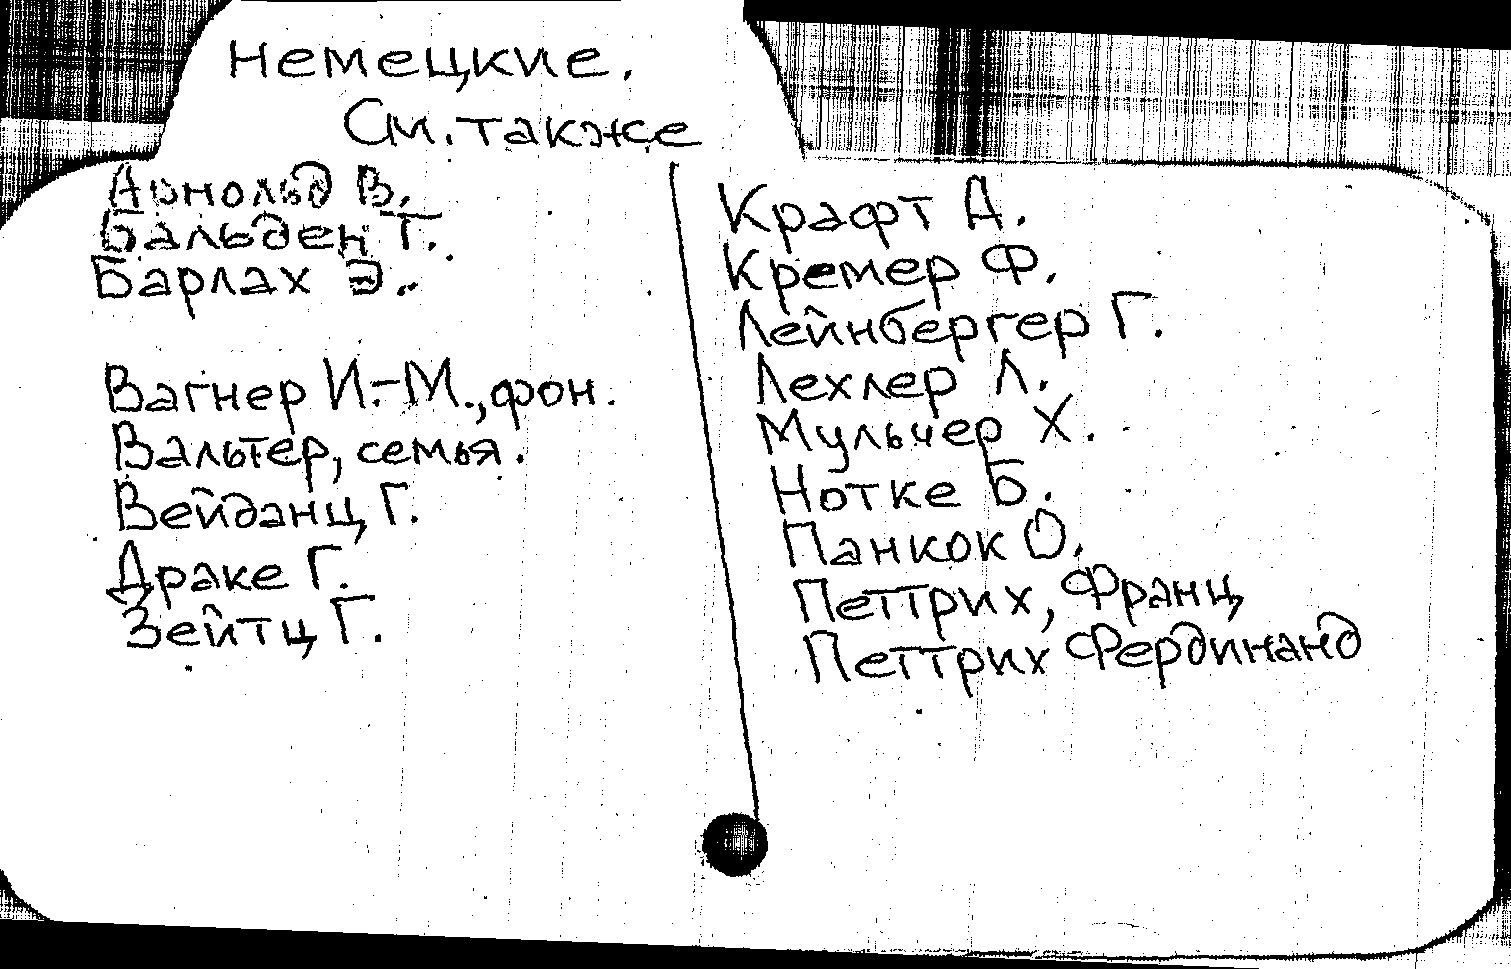 Немецкие.
См. также
Арнольд В.
Бальден Т.
Барлах Э.
Вагнер И.-М., фон.
Вальтер, семья.
Вейданц Г.
Драке Г.
Зейтц Г.
Крафт А.
Кремер Ф.
Лейнбергер Г.
Лехлер Л.
Мульчер Х.
Нотке Б.
Панкок О.
Петтрих, Франц
Петтрих Фердинанд